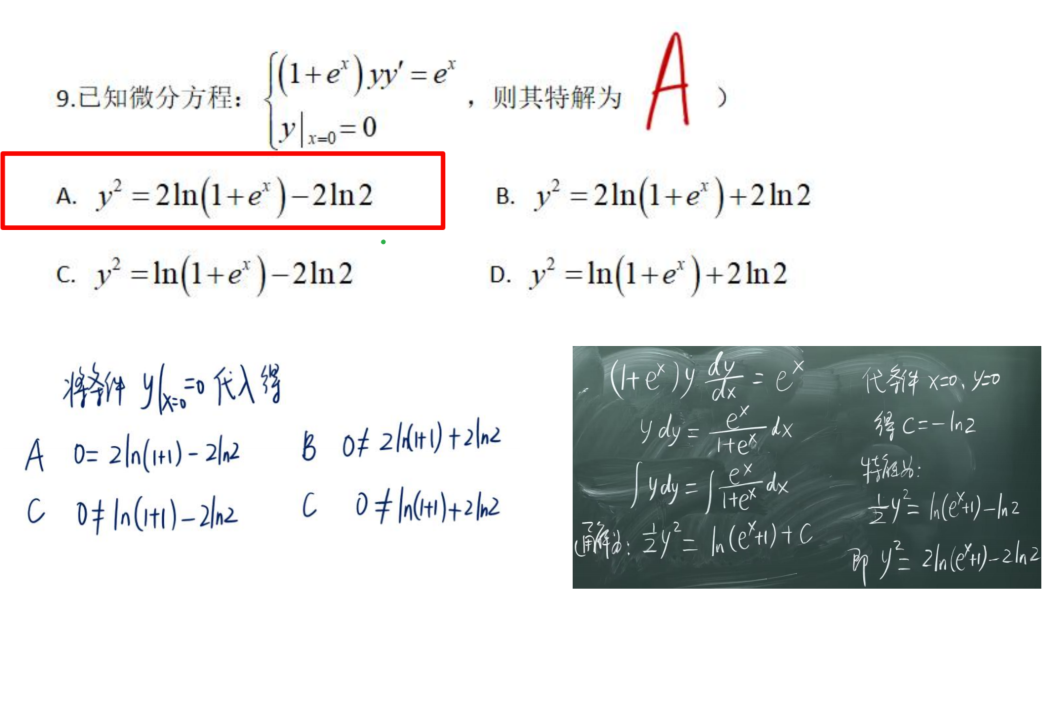 9.已知微分方程：{(1+e^x)yy′=e^x
y|_{x=0}=0 ，则其特解为 A ）
A. y²=2ln(1+e^x)−2ln2 B. y²=2ln(1+e^x)+2ln2
C. y²=ln(1+e^x)−2ln2 D. y²=ln(1+e^x)+2ln2
将条件 y|_{x=0}=0 代入得
A 0=2ln(1+1)-2ln2 B 0≠2ln(1+1)+2ln2
C 0≠ln(1+1)-2ln2 C 0≠ln(1+1)+2ln2
(1+e^x)y dy/dx = e^x
y dy = e^x/(1+e^x) dx
∫y dy = ∫ e^x/(1+e^x) dx
通解为: ½y² = ln(e^x+1)+C
代条件 x=0, y=0
得 C=-ln2
特解为:
½y² = ln(e^x+1)-ln2
即 y² = 2ln(e^x+1)-2ln2